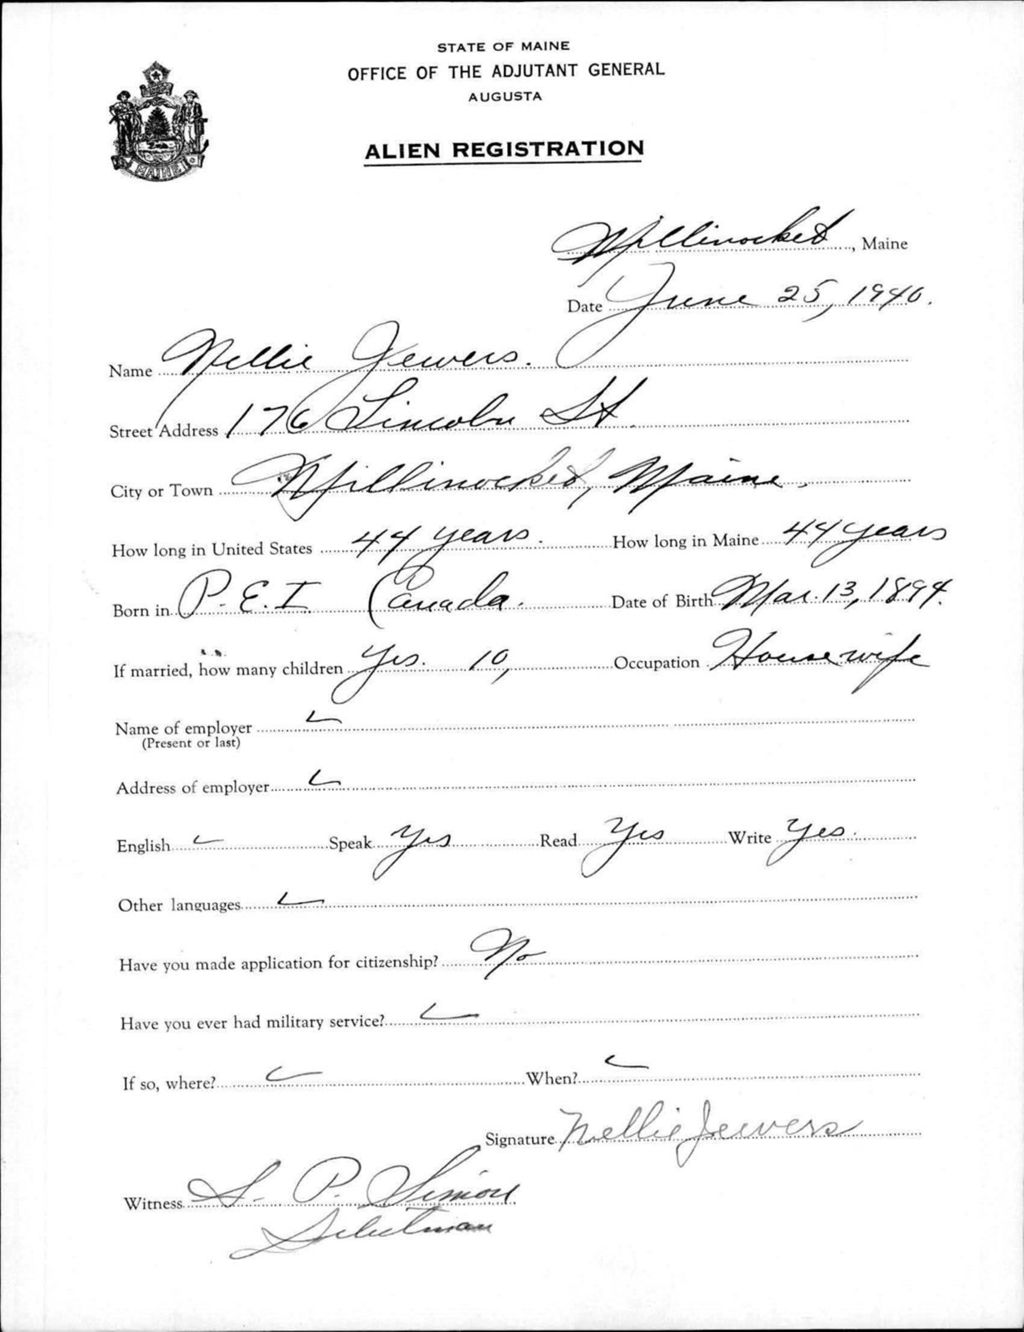 STATE OF MAINE
OFFICE OF THE ADJUTANT GENERAL
AUGUSTA
ALIEN REGISTRATION
MAINE
Millinocket, Maine
Date June 25, 1940.
Name Nellie Jewers.
Street Address 176 Lincoln St.
City or Town Millinocket, Maine.
How long in United States 44 years. How long in Maine 44 years
Born in P.E.I. Canada. Date of Birth Mar. 13, 1894.
If married, how many children Yes. 10, Occupation Housewife
Name of employer
(Present or last)
Address of employer
English Speak Yes Read Yes Write Yes.
Other languages
Have you made application for citizenship? No
Have you ever had military service?
If so, where? When?
Signature Nellie Jewers
Witness S. P. Simon
Selectman